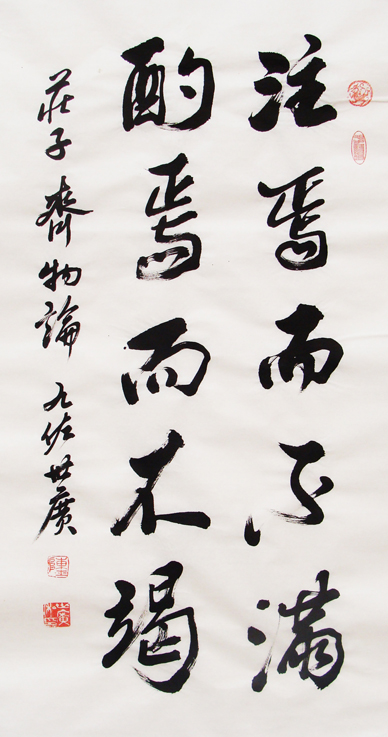 注焉而不滿
酌焉而不竭
莊子 齊物論 九佐世廣